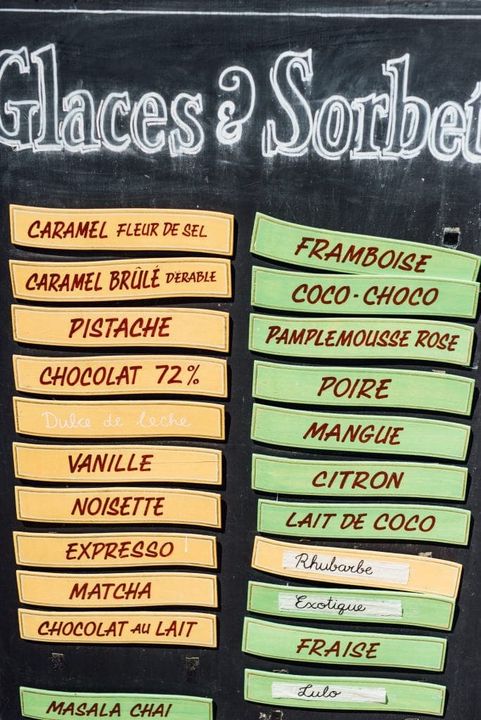 Glaces & Sorbet
CARAMEL FLEUR DE SEL
CARAMEL BRÛLÉ D'ÉRABLE
PISTACHE
CHOCOLAT 72%
Dulce de leche
VANILLE
NOISETTE
EXPRESSO
MATCHA
CHOCOLAT AU LAIT
MASALA CHAI
FRAMBOISE
COCO-CHOCO
PAMPLEMOUSSE ROSE
POIRE
MANGUE
CITRON
LAIT DE COCO
Rhubarbe
Exotique
FRAISE
Lulo